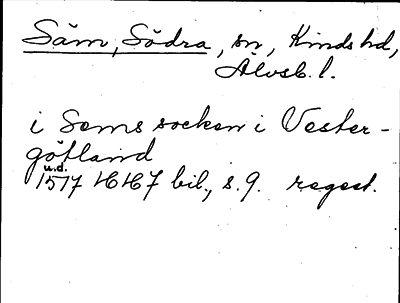 Säm, Södra, sn, Kinds hd,
Älvsb. l.
i Soms socken i Vester-
götland
u.d.
1517 HH 7 bil., s. 9. regest.